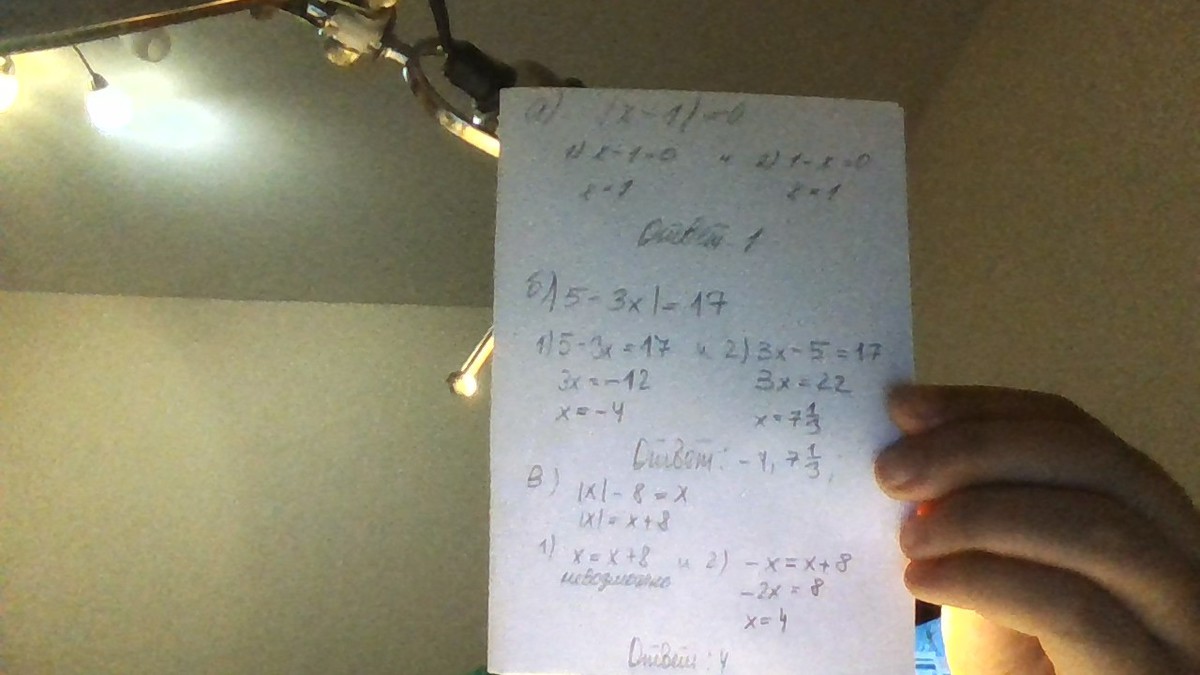 а) |x-1|=0
1) x-1=0 и 2) 1-x=0
x=1 x=1
Ответ 1
б) |5-3x|=17
1) 5-3x=17 и 2) 3x-5=17
3x=-12 3x=22
x=-4 x=7 1/3
Ответ: -4, 7 1/3;
в) |x|-8=x
|x|=x+8
1) x=x+8 и 2) -x=x+8
невозможно -2x=8
x=4
Ответ: 4